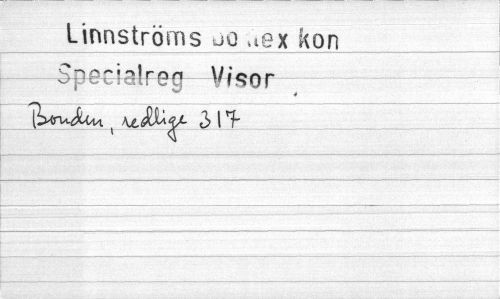 Linnströms Boklexikon
Specialreg Visor
Bonden, redlige 317